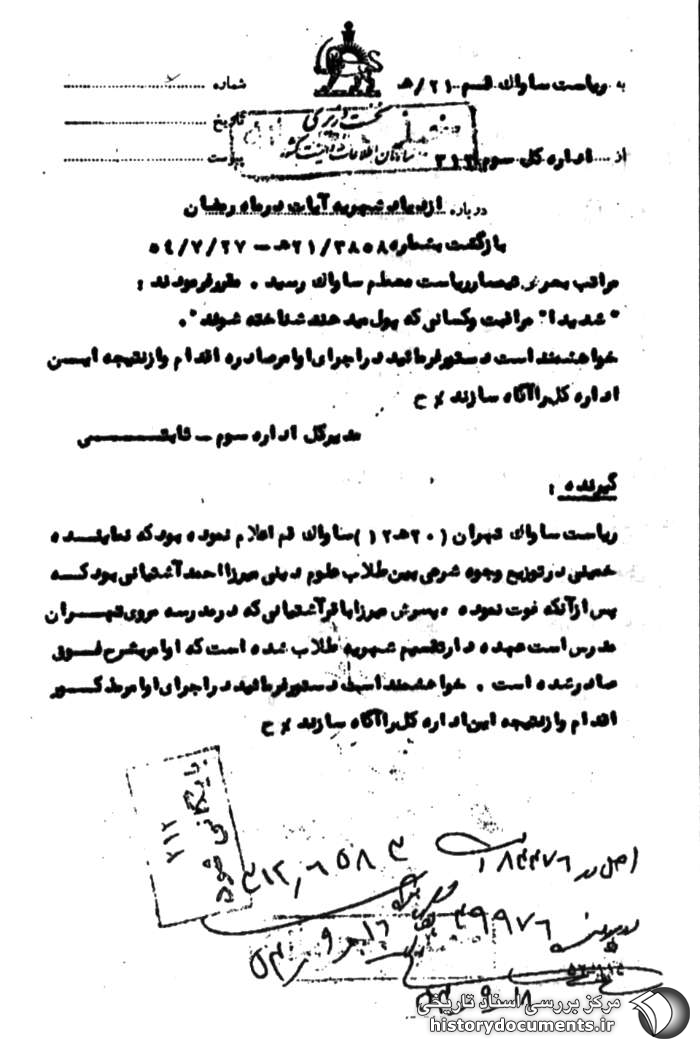 به ریاست ساواک قم ۲۱/ھ
شماره
نخست وزیری
تاریخ
سازمان اطلاعات و امنیت کشور
از اداره کل سوم ۳۱۲
پیوست
درباره ازدیاد شهریه آیات در ماه رمضان
بازگشت بشماره ۲۱/۳۸۵۸ھ – ۵۴/۷/۲۷
مراتب بعرض تیمسار ریاست معظم ساواک رسید . مقرر فرمودند :
" شدیدا" مراقبت وکسانی که پول میدهند شناخته شوند " .
خواهشمند است دستور فرمائید در اجرای اوامر صادره اقدام و از نتیجه ایـن
اداره کل را آگاه سازند ٪ ح
مدیرکل اداره سوم – ثابتـــی
گیرنده :
ریاست ساواک تهران ( ۲۰ھ۱۲ ) ساواک قم اعلام نموده بود که نماینـده
خمینی در توزیع وجوه شرعی بین طلاب علوم دینی میرزا احمد آشتیانی بود کـه
پس از آنکه فوت نموده ، پسرش میرزا باقر آشتیانی که در مدرسه مروی تهـران
مدرس است عهده دار تقسیم شهریه طلاب شده است که اوامر بشرح فـوق
صادر شده است . خواهشمند است دستور فرمائید در اجرای اوامر مذکـور
اقدام و از نتیجه این اداره کل را آگاه سازند ٪ ح
بایگانی شود
۳۱۲
اصل در ۱۸۴۴۷۶
۴۹۹۷۶
مرکز بررسی اسناد تاریخی
historydocuments.ir